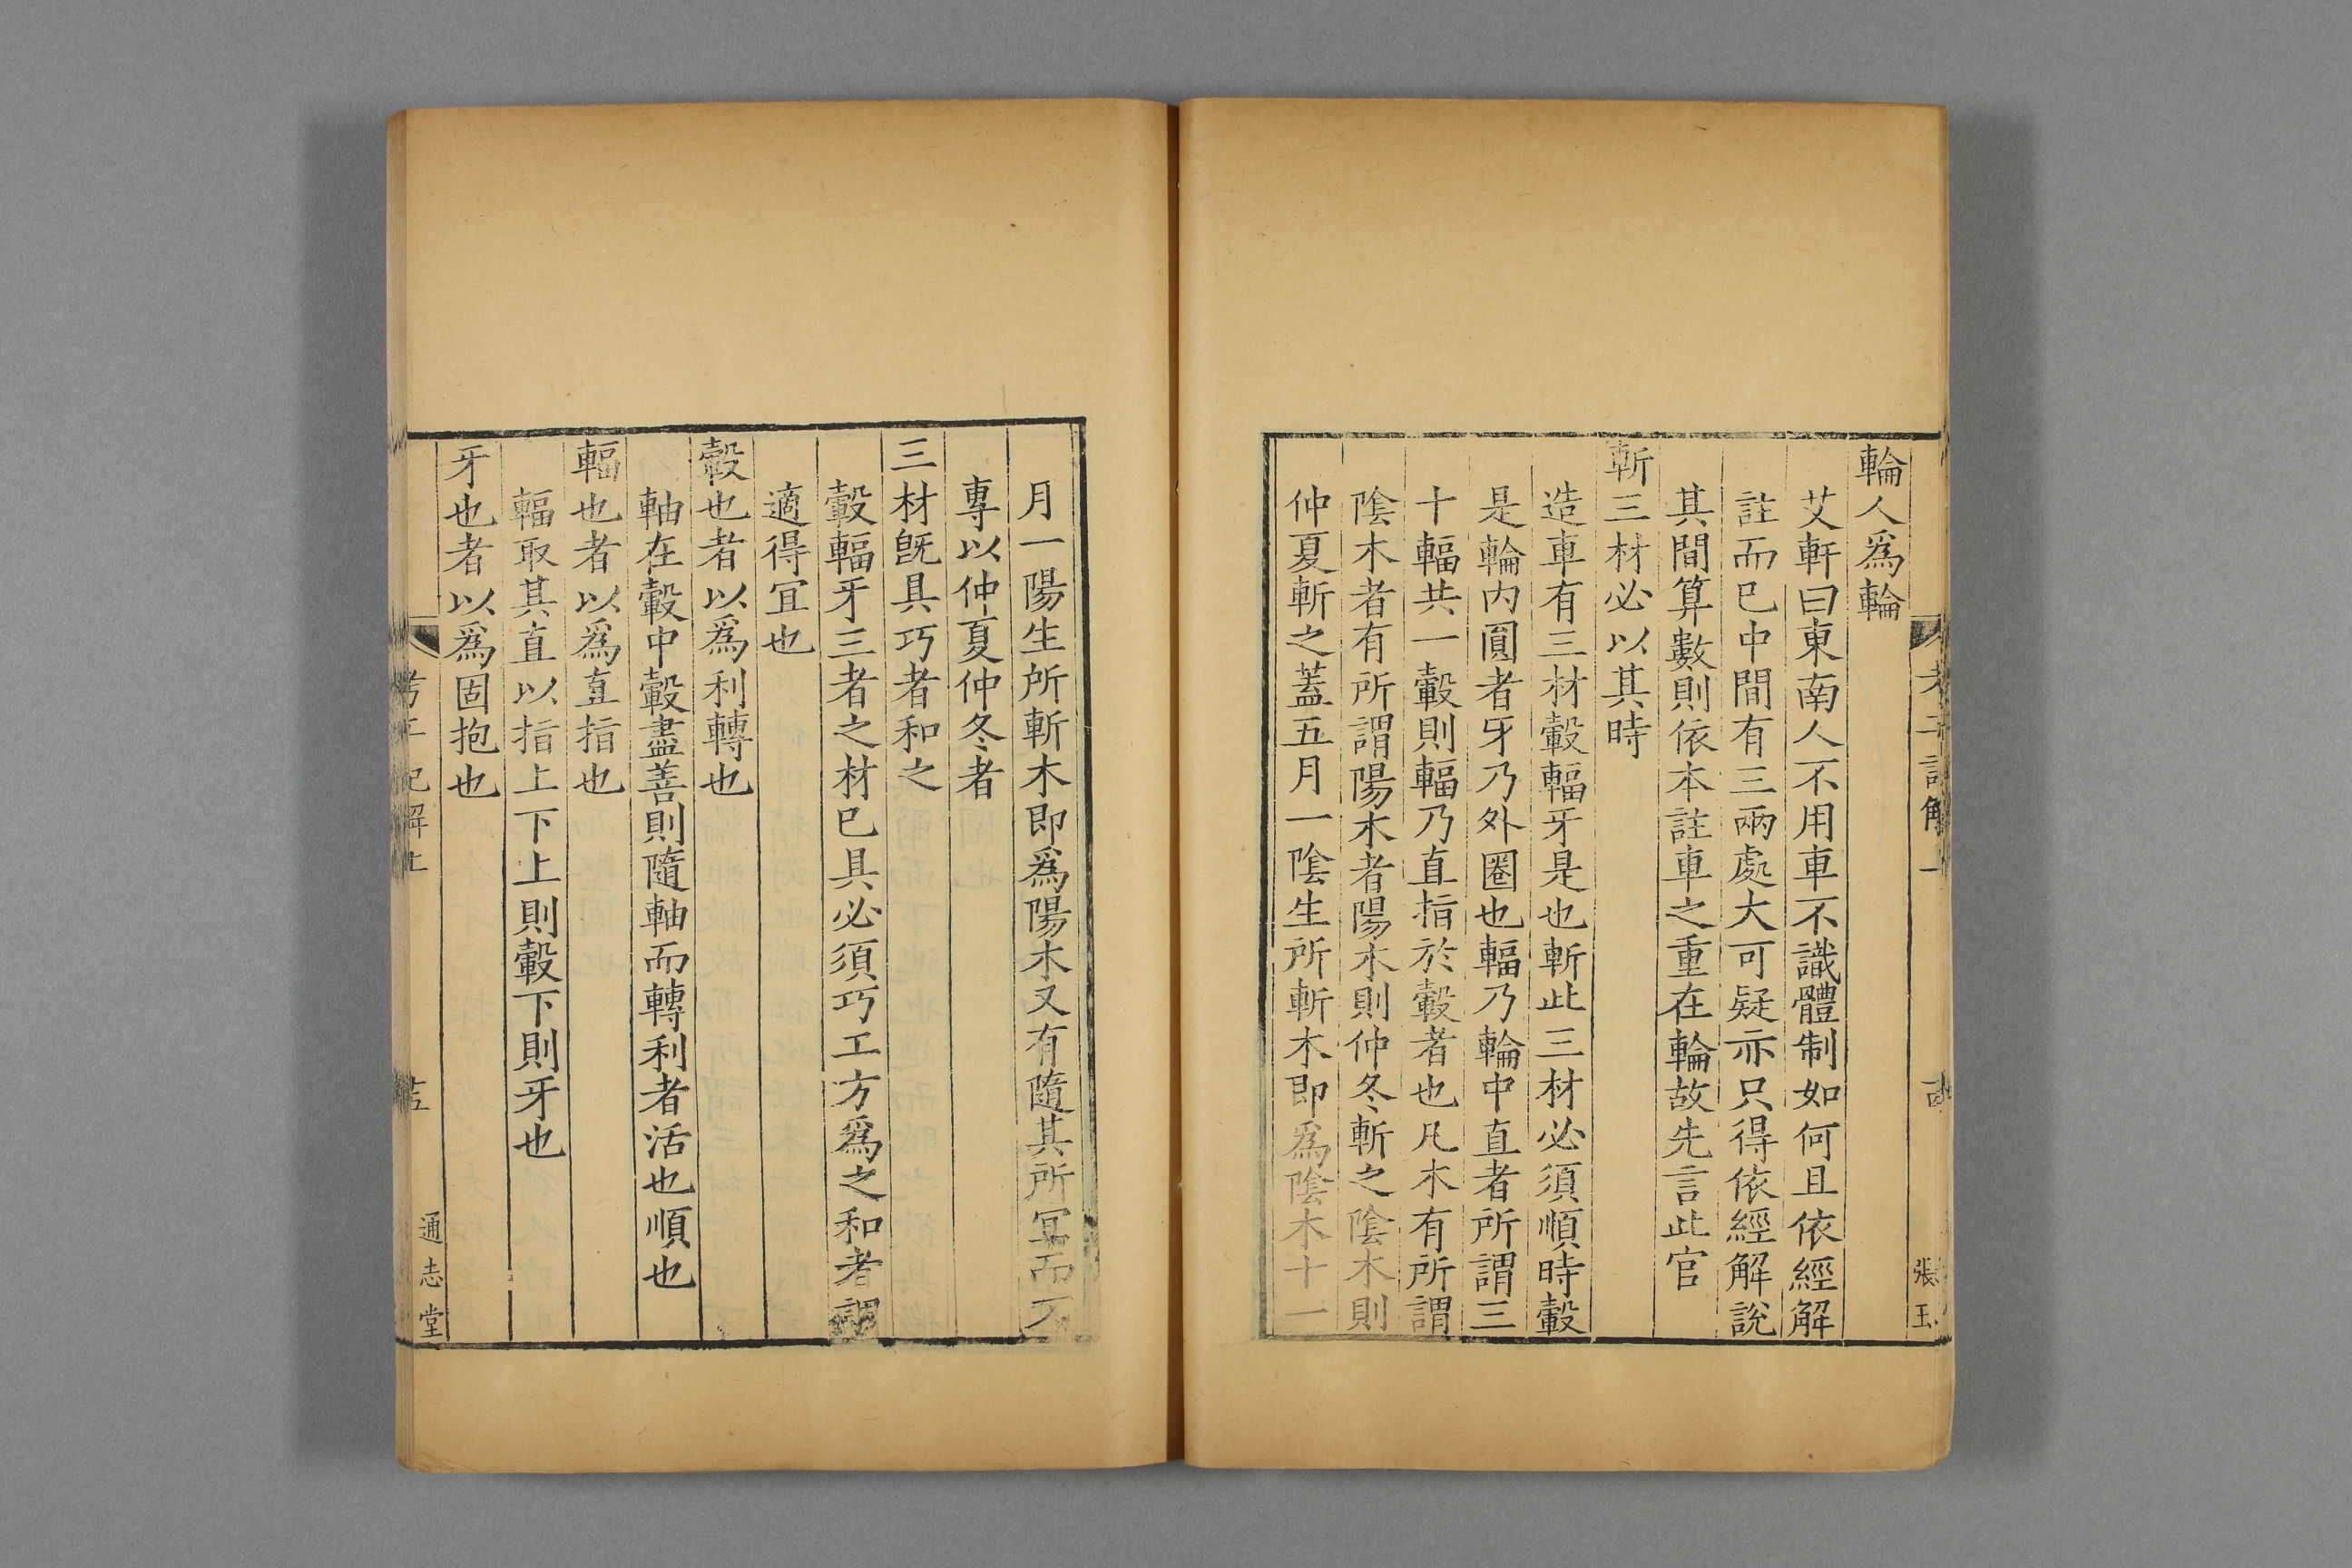 輪人爲輪
艾軒曰東南人不用車不識體制如何且依經解
註而已中間有三兩處大可疑亦只得依經解說
其間算數則依本註車之重在輪故先言此官
斬三材必以其時
造車有三材轂輻牙是也斬此三材必須順時轂
是輪內圓者牙乃外圈也輻乃輪中直者所謂三
十輻共一轂則輻乃直指於轂者也凡木有所謂
陰木者有所謂陽木者陽木則仲冬斬之陰木則
仲夏斬之蓋五月一陰生所斬木即爲陰木十一
張玉
月一陽生所斬木即爲陽木又有隨其所冝而不
專以仲夏仲冬者
三材旣具巧者和之
轂輻牙三者之材已具必須巧工方爲之和者調
適得冝也
轂也者以爲利轉也
軸在轂中轂盡善則隨軸而轉利者活也順也
輻也者以爲直指也
輻取其直以指上下上則轂下則牙也
牙也者以爲固抱也
考工記解上
通志堂